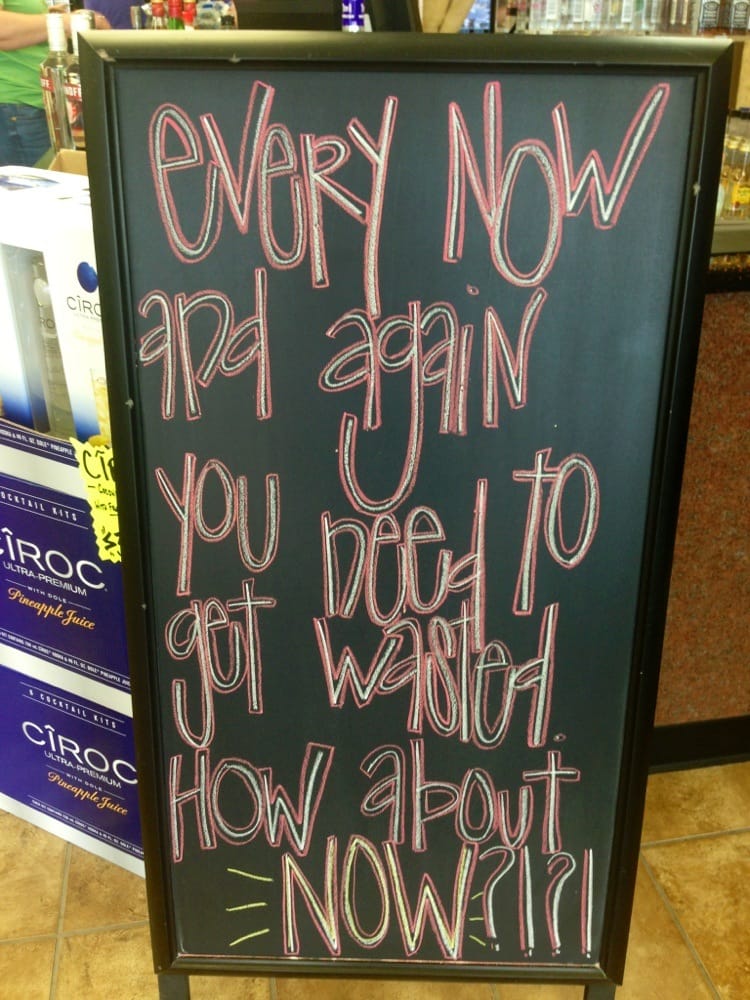 every now
and again
you need to
get wasted.
How about
NOW?!?!
CÎROC
COCKTAIL KITS
CÎROC
ULTRA-PREMIUM
WITH DOLE
Pineapple Juice
6 COCKTAIL KITS
CÎROC
ULTRA-PREMIUM
WITH DOLE
Pineapple Juice